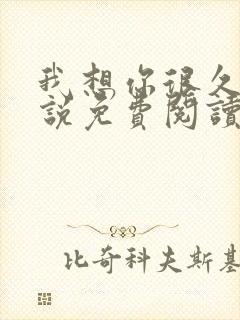 我想你很久
說免費閱讀
比奇科夫斯基